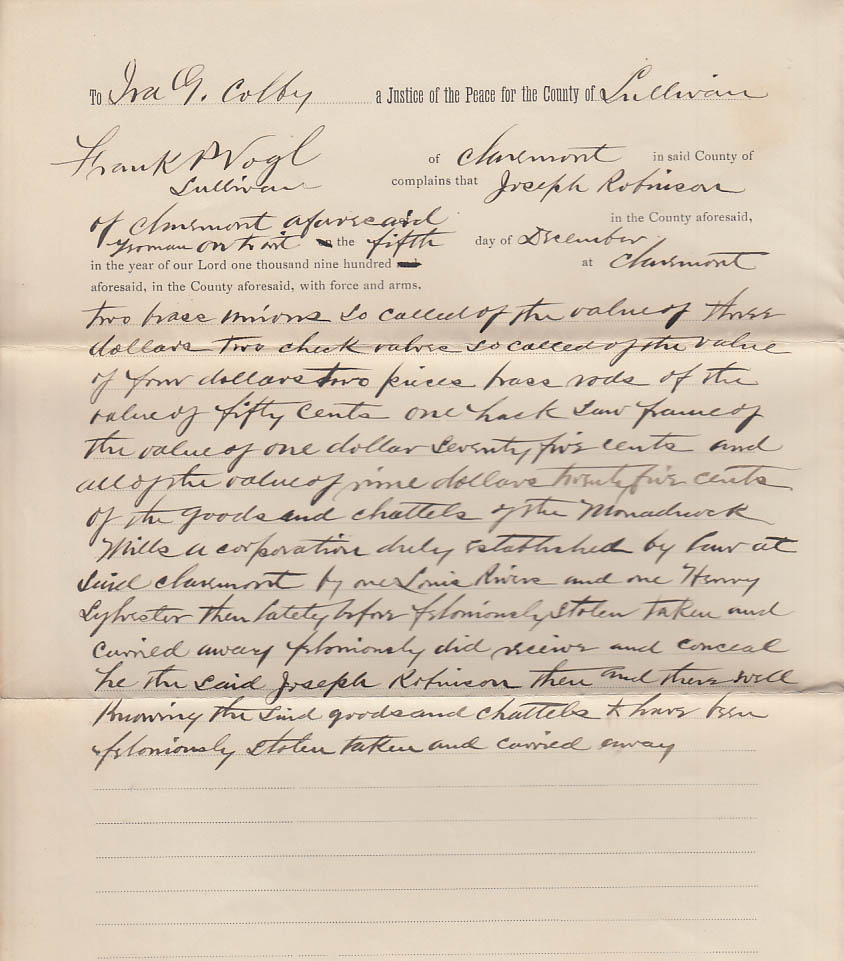 To Ira G. Colby a Justice of the Peace for the County of Sullivan
Frank P Vogl of Claremont in said County of
Sullivan complains that Joseph Robinson
of Claremont aforesaid in the County aforesaid,
Yeoman on the fifth day of December
in the year of our Lord one thousand nine hundred at Claremont
aforesaid, in the County aforesaid, with force and arms,
two brass unions so called of the value of three
dollars two check valves so called of the value
of four dollars two pieces brass rods of the
value of fifty cents one hack saw frame of
the value of one dollar seventy five cents and
all of the value of nine dollars twenty five cents
of the goods and chattels of the Monadnock
Mills a corporation duly established by law at
said Claremont by one Louis Rivers and one Henry
Sylvester then lately before feloniously stolen taken and
carried away feloniously did receive and conceal
he the said Joseph Robinson then and there well
knowing the said goods and chattels to have been
feloniously stolen taken and carried away